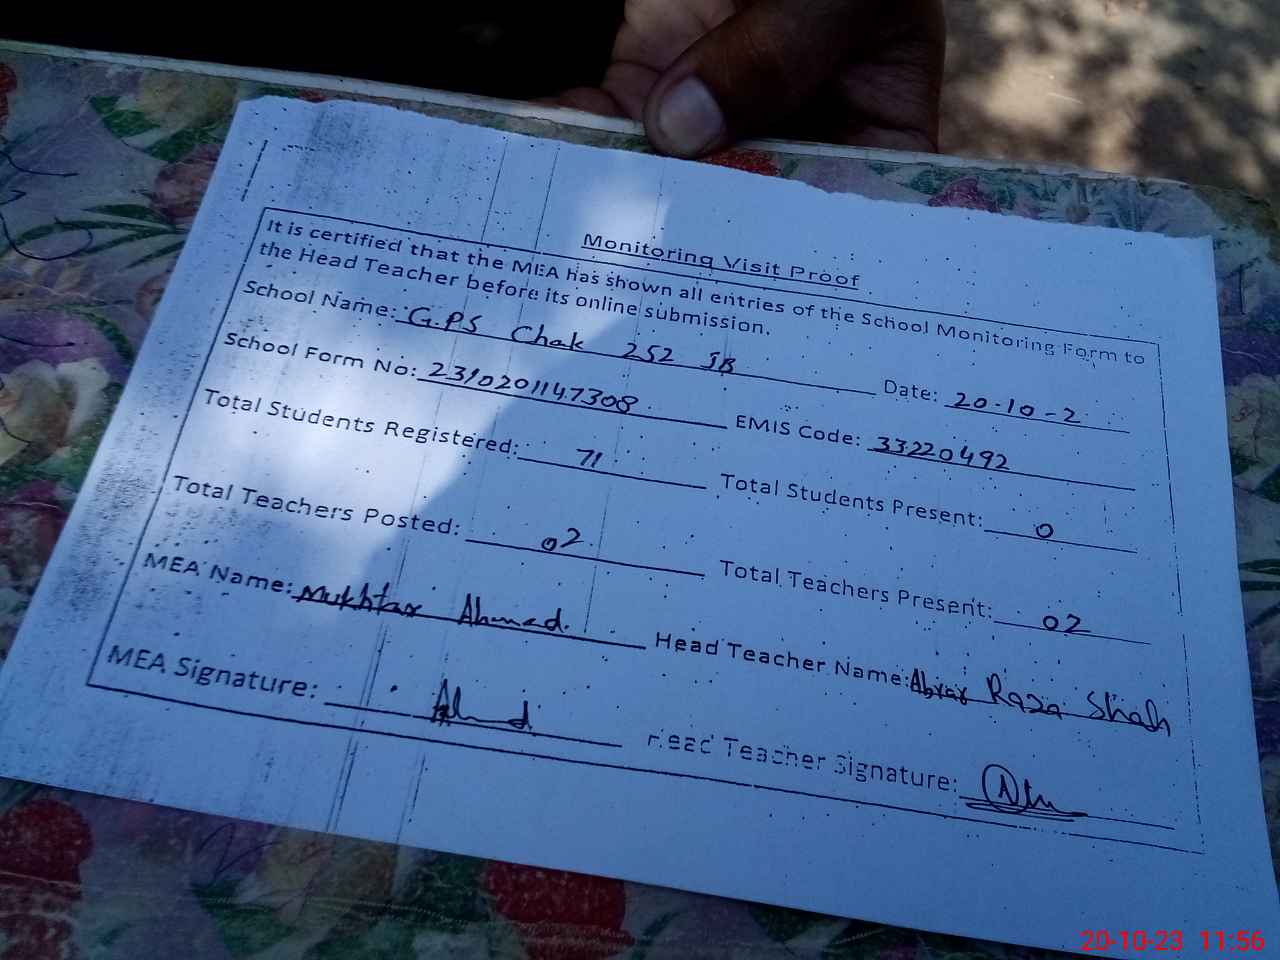 Monitoring Visit Proof
It is certified that the MEA has shown all entries of the School Monitoring Form to
the Head Teacher before its online submission.
School Name: G.PS Chak 252 JB Date: 20-10-2
School Form No: 2310201147308 EMIS Code: 33220492
Total Students Registered: 71 Total Students Present: 0
Total Teachers Posted: 02 Total Teachers Present: 02
MEA Name: Mukhtar Ahmad. Head Teacher Name: Abrar Raza Shah
MEA Signature: Head Teacher Signature:
20-10-23 11:56